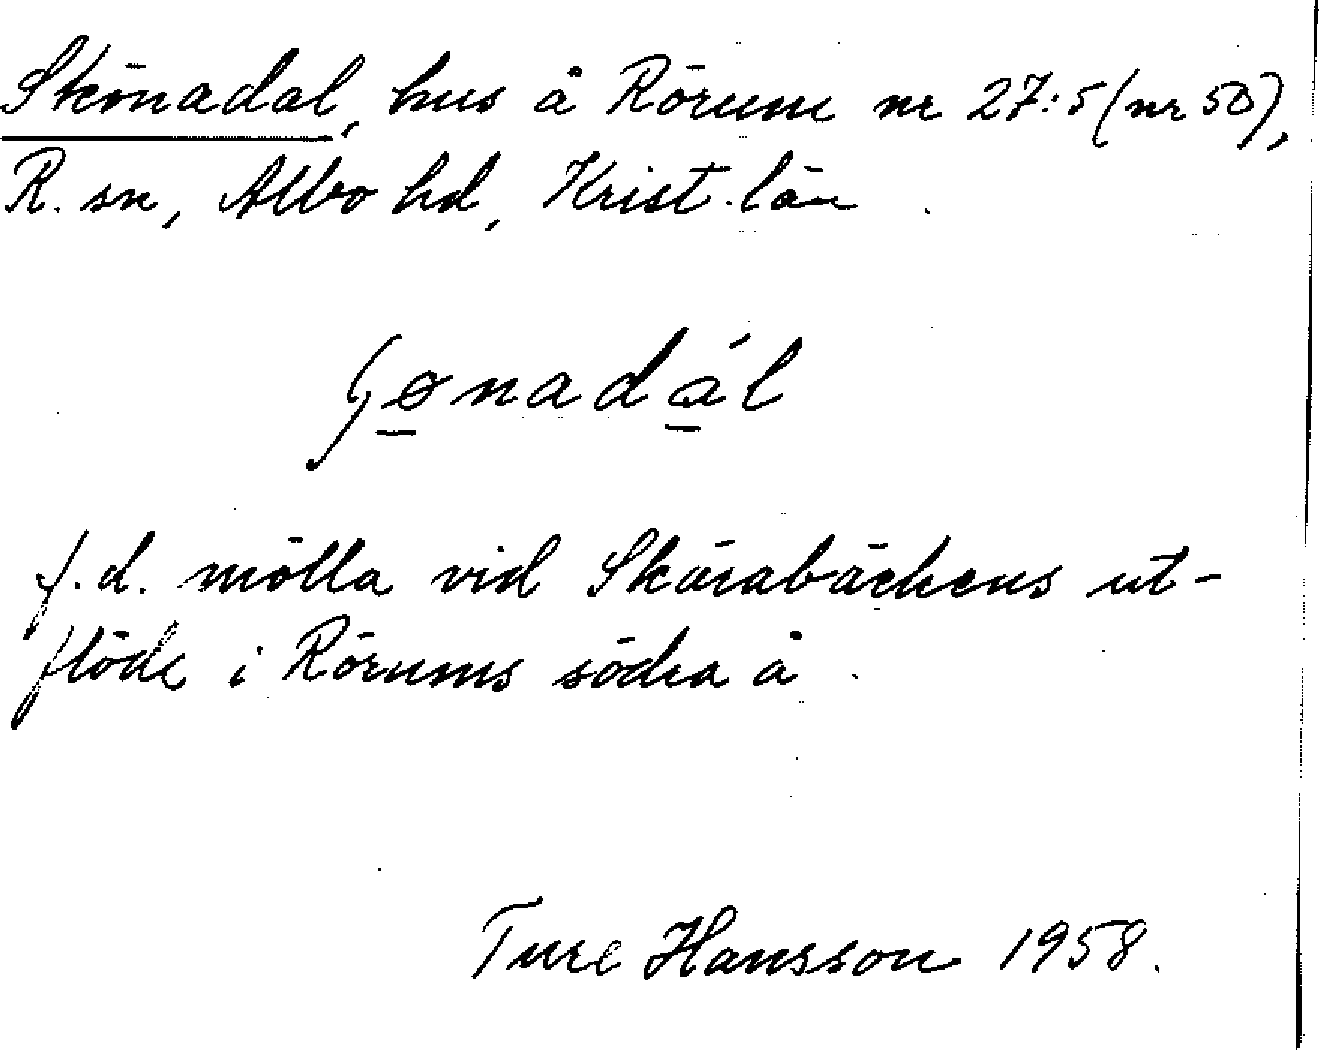 Skönadal, hus å Rörum nr 27:5 (nr 50),
R. sn, Albo hd, Krist. län
ʃø̱nadá̱l
f.d. mölla vid Skärabäckens ut-
flöde i Rörums södra å.
Ture Hansson 1958.